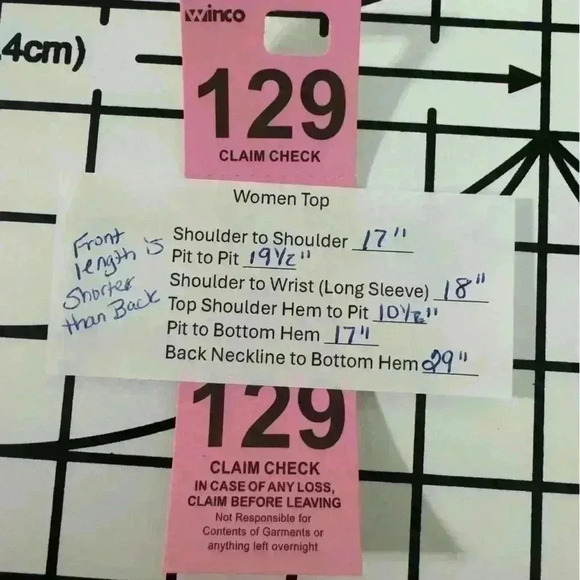 winco
4cm)
129
CLAIM CHECK
Women Top
Front
length is
Shorter
than Back
Shoulder to Shoulder 17"
Pit to Pit 19½"
Shoulder to Wrist (Long Sleeve) 18"
Top Shoulder Hem to Pit 10½"
Pit to Bottom Hem 17"
Back Neckline to Bottom Hem 29"
129
CLAIM CHECK
IN CASE OF ANY LOSS,
CLAIM BEFORE LEAVING
Not Responsible for
Contents of Garments or
anything left overnight